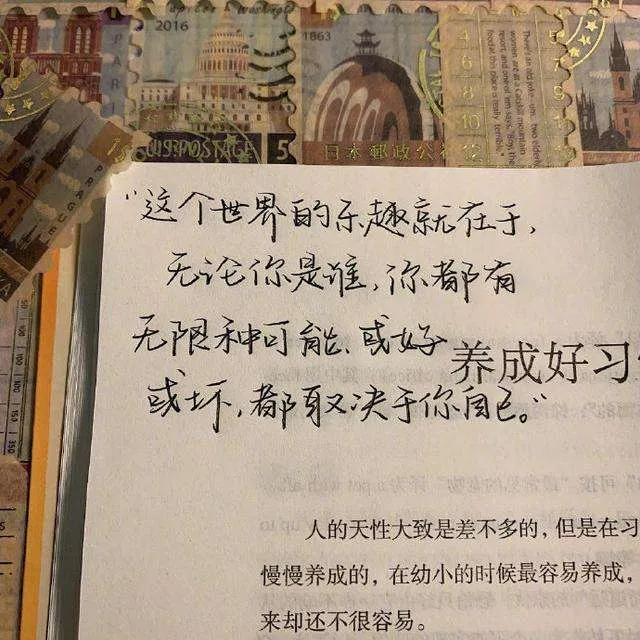 PARI
2016
U.S. POSTAGE 5
1863
日本郵政公
4
6
8
10
12
PRAGUE
“这个世界的乐趣就在于,
无论你是谁,你都有
无限种可能、或好
或坏,都取决于你自己。”
养成好习
人的天性大致是差不多的，但是在习
慢慢养成的，在幼小的时候最容易养成，
来却还不很容易。